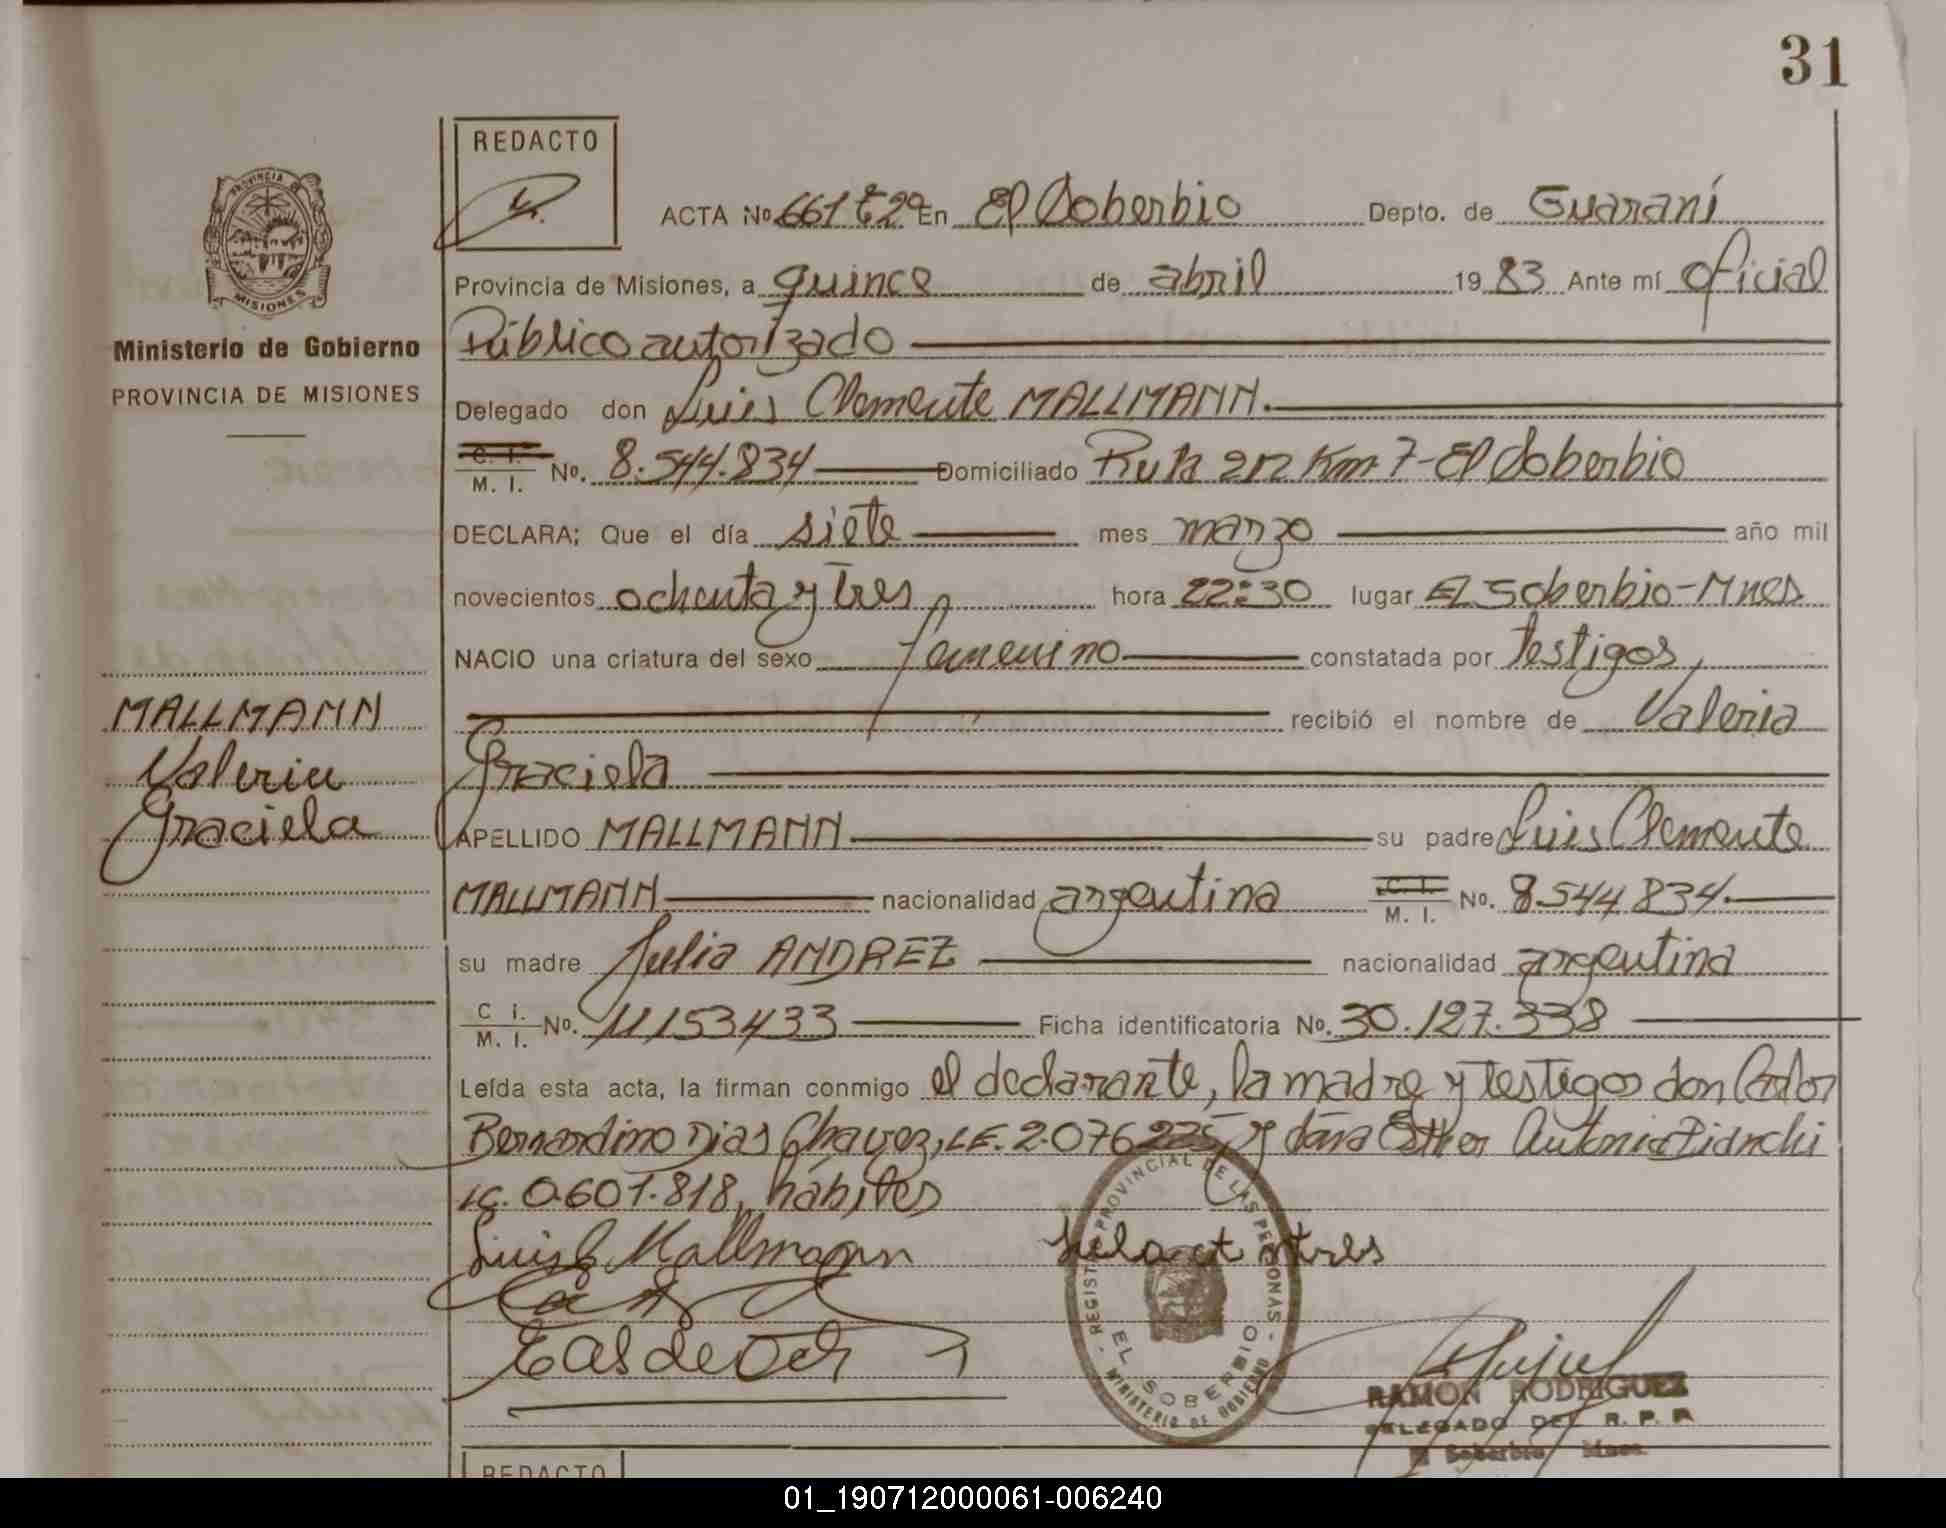 31
REDACTO
ACTA No. 661 t 2º En El Soberbio Depto. de Guaraní
PROVINCIA DE MISIONES
Provincia de Misiones, a quince de abril 1983 Ante mí Oficial
Ministerio de Gobierno
PROVINCIA DE MISIONES
Público autorizado
Delegado don Luis Clemente MALLMANN.
C. I. M. I. No. 8.544.834 Domiciliado Ruta 212 Km. 7-El Soberbio
DECLARA; Que el día siete mes marzo año mil
novecientos ochenta y tres hora 22:30 lugar El Soberbio-Mnes
NACIO una criatura del sexo femenino constatada por testigos,
MALLMANN
Valeria
Graciela
recibió el nombre de Valeria
Graciela
APELLIDO MALLMANN su padre Luis Clemente
MALLMANN nacionalidad argentina C. I. M. I. No. 8.544.834.
su madre Julia ANDREZ nacionalidad argentina
C I. M. I. No. 11153433 Ficha identificatoria No. 30.127.338
Leída esta acta, la firman conmigo el declarante, la madre y testigos don Carlos
Bernardino Dias Chavez, L.E. 2.076.225, y doña Esther Antonia
LC. 0.601.818, hábiles
Luis C Mallmann
REGISTRO PROVINCIAL DE LAS PERSONAS - MINISTERIO DE GOBIERNO -
EL SOBERBIO
RAMON RODRIGUEZ
DELEGADO DEL R. P. P.
El Soberbio Mnes.
REDACTO
01_190712000061-006240